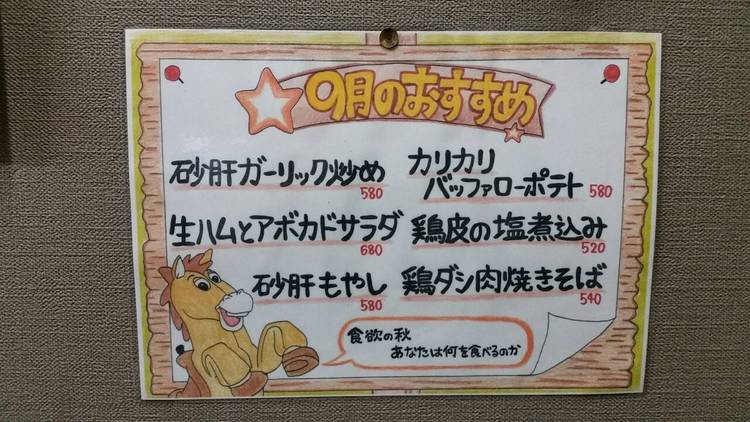 9月のおすすめ
砂肝ガーリック炒め
580
生ハムとアボカドサラダ
680
砂肝もやし
580
カリカリ
バッファローポテト 580
鶏皮の塩煮込み
520
鶏ダシ肉焼きそば
540
食欲の秋
あなたは何を食べるのか